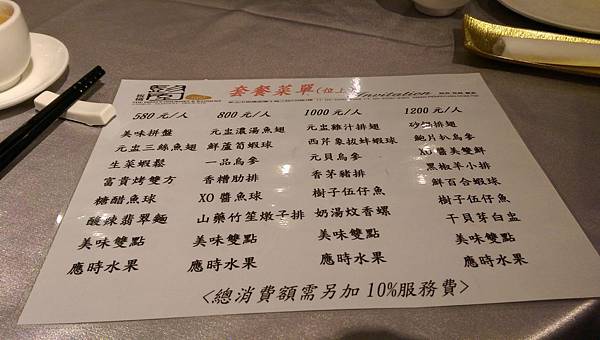 套餐菜單(位上)
Invitation
580 元/人 800 元/人 1000 元/人 1200 元/人
美味拼盤 元盅濃湯魚翅 元盅雞汁排翅 砂鍋排翅
元盅三絲魚翅 鮮蘆筍蝦球 西芹象拔蚌蝦球 鮑片扒烏參
生菜蝦鬆 一品烏參 元貝烏參 XO醬美雙鮮
富貴烤雙方 香糟肋排 香茅豬排 黑椒羊小排
糖醋魚球 XO醬魚球 樹子伍仔魚 鮮百合蝦球
酸辣翡翠麵 山藥竹笙燉子排 奶湯炆香螺 樹子伍仔魚
美味雙點 美味雙點 美味雙點 干貝芽白盅
應時水果 應時水果 應時水果 美味雙點
應時水果
<總消費額需另加10%服務費>